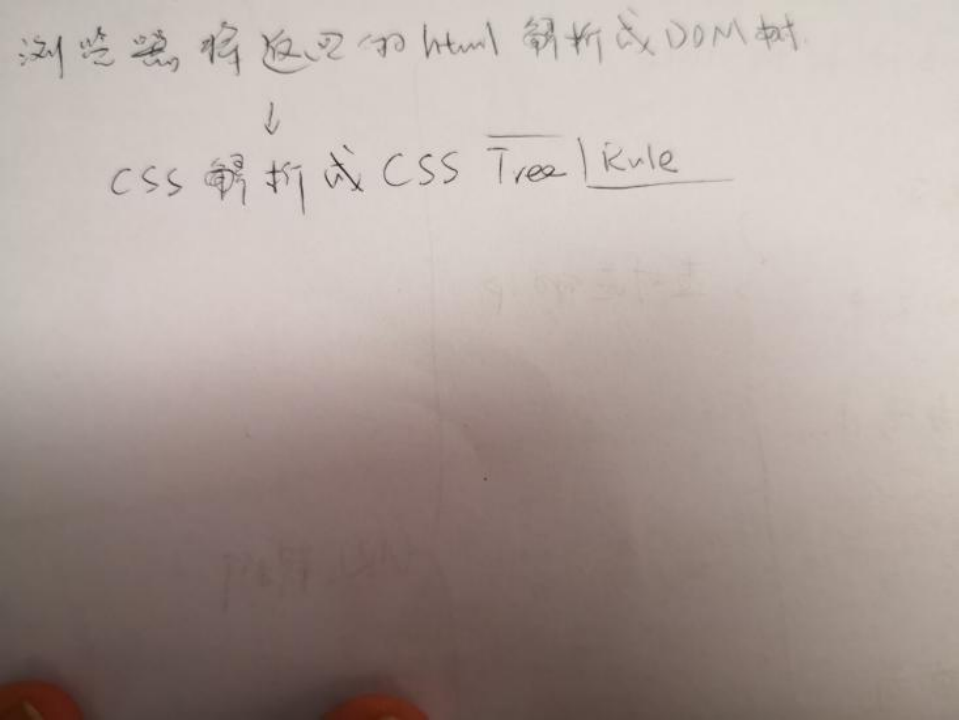 浏览器将返回的html解析成DOM树
↓
CSS解析成CSS Tree|Rule